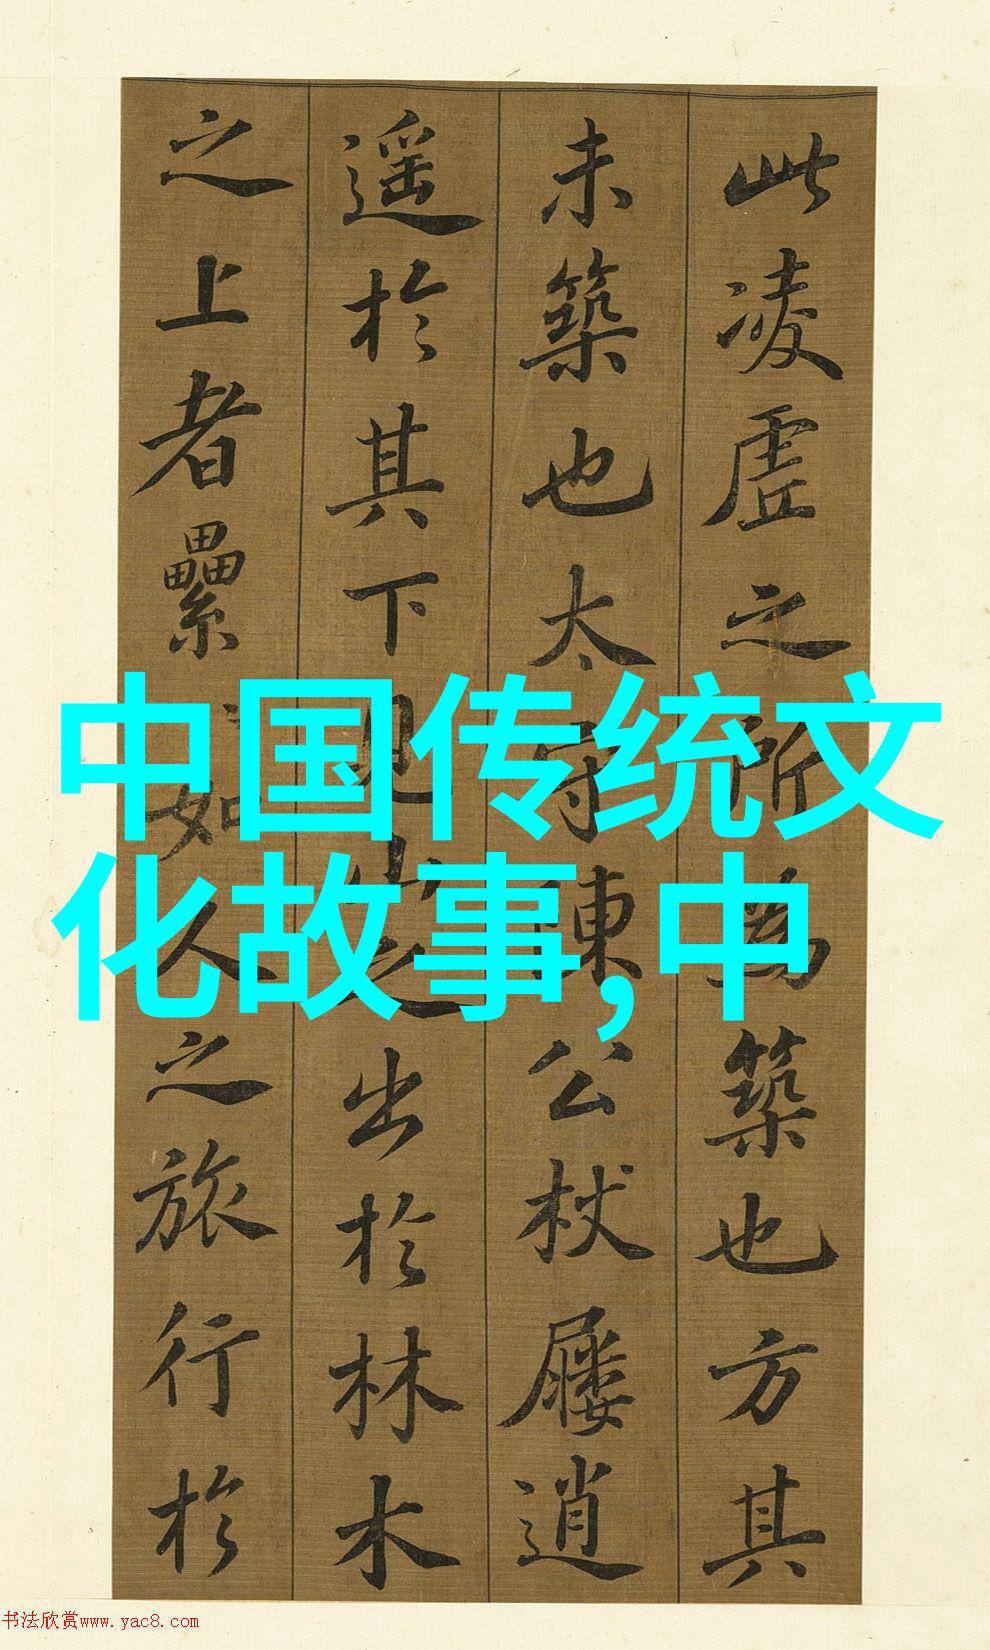 此凌虛之所為築也方其
未築也太守陳公杖屨逍
遥於其下見山之出於林木
之上者纍〻如人之旅行於
中国传统文
化故事,中
书法欣赏www.yac8.com